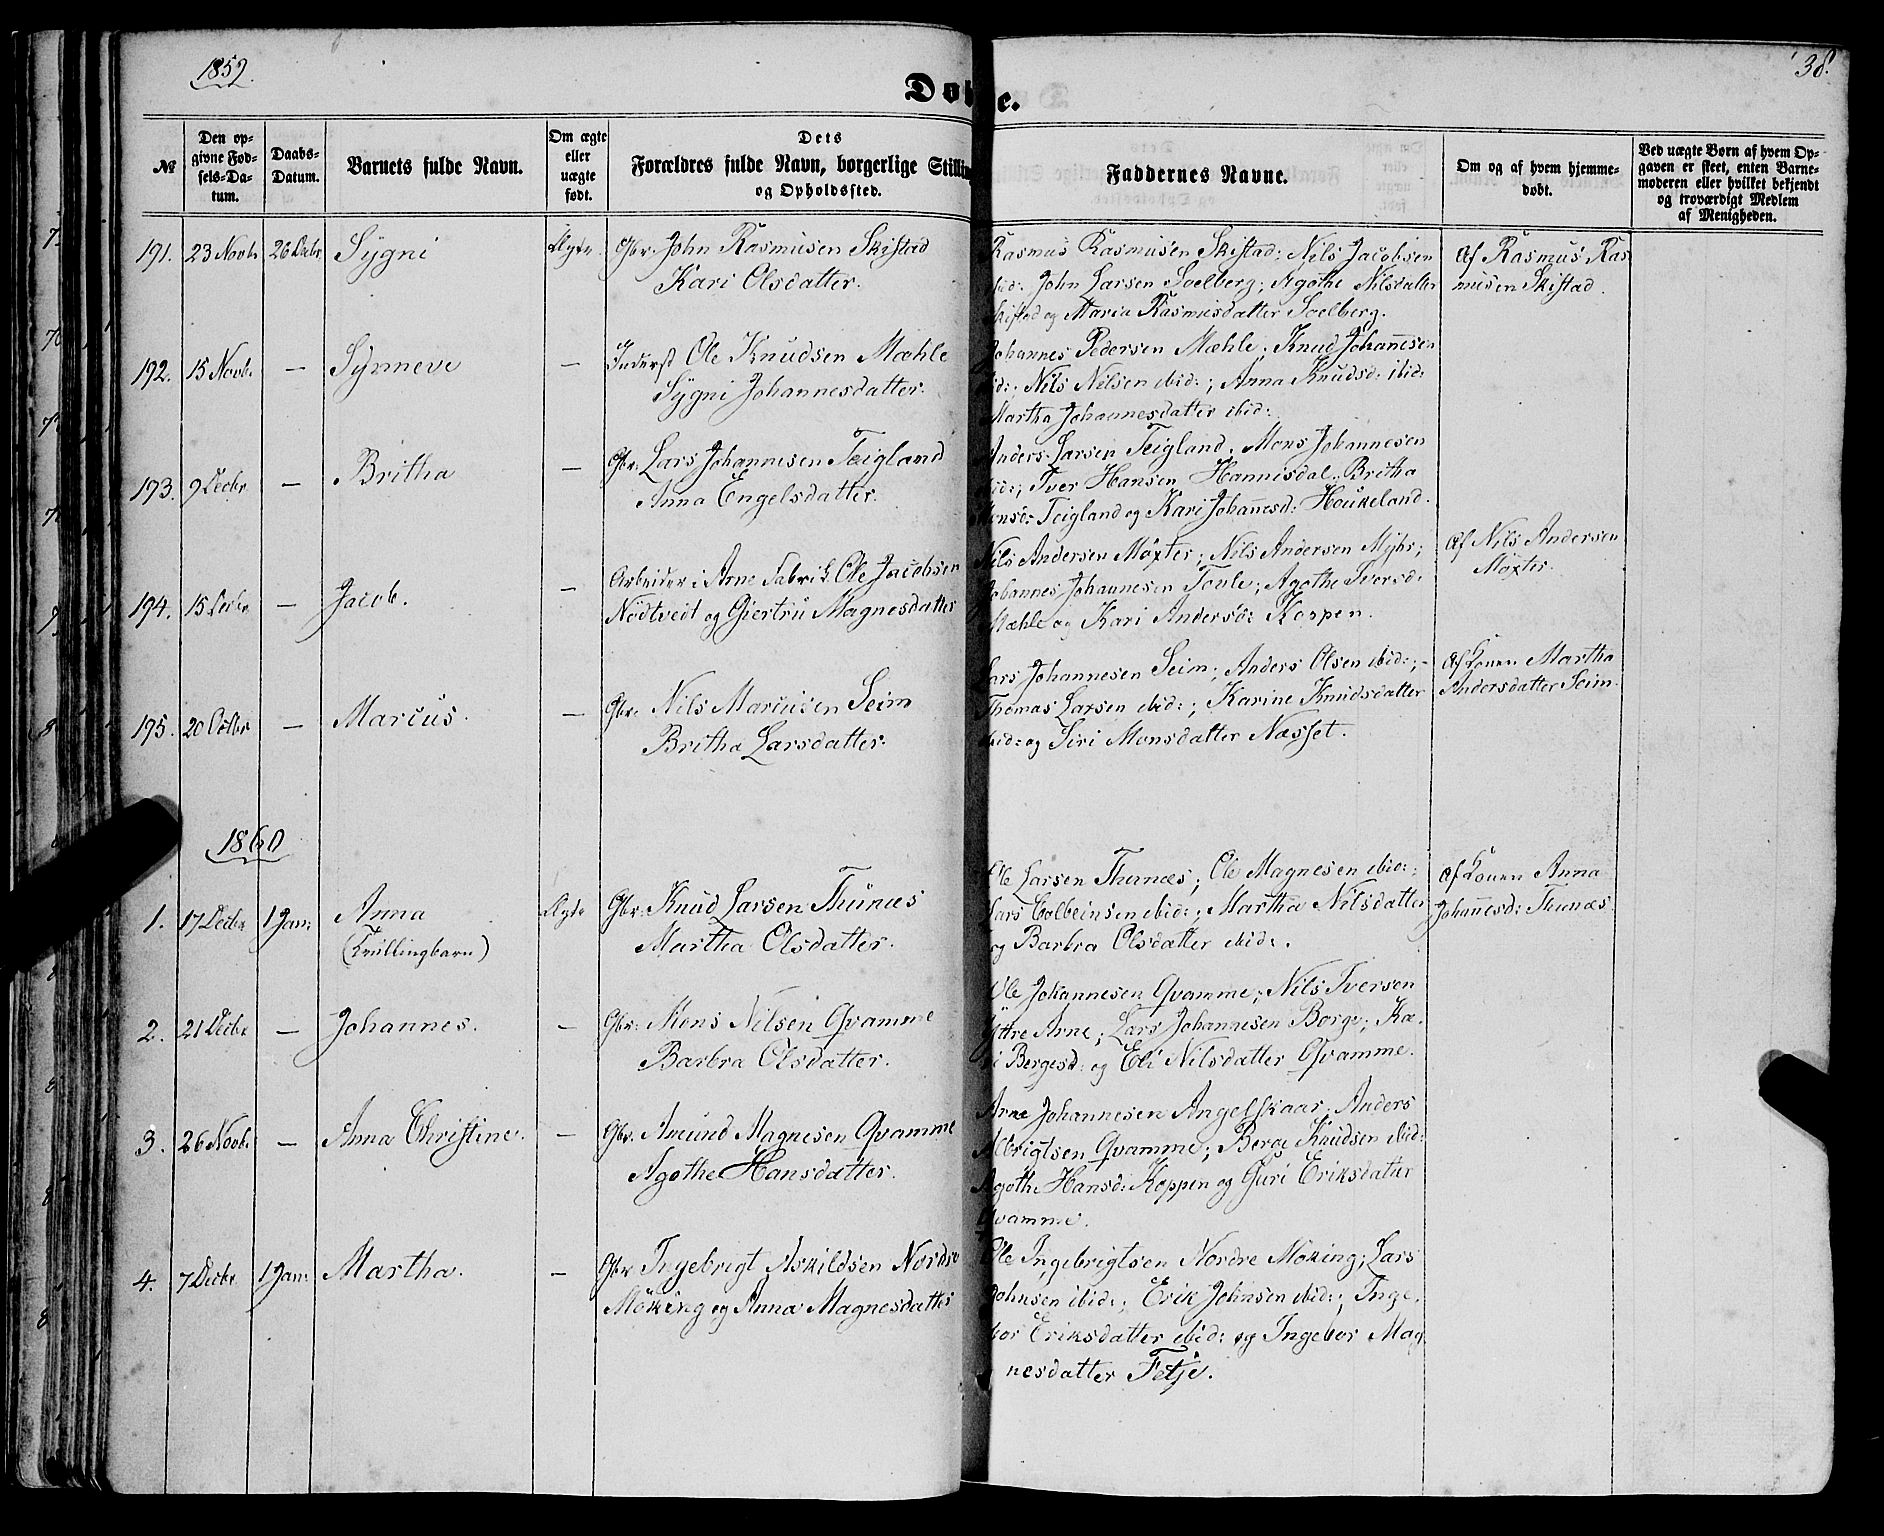 1859.
38.
Døbte.
№
Den opgivne Fødsels-Datum.
Daabs-Datum.
Barnets fulde Navn.
Om ægte eller uægte født.
Dets Forældres fulde Navn, borgerlige Stilling og Opholdssted.
Faddernes Navne.
Om og af hvem hjemmedøbt.
Ved uægte Børn af hvem Opgaven er skeet, enten Barnemoderen eller hvilket bekjendt og troværdigt Medlem af Menigheden.
191. 23 Novbr 26 Decbr Sygni Ægte Gbr. John Rasmusen Skistad
Kari Olsdatter.
Rasmus Rasmusen Skistad; Nils Jacobsen
ibid: John Larsen Solberg; Agothe Nilsdatter
Skistad og Maria Rasmusdatter Soelberg.
Af Rasmus Ras
musen Skistad.
192. 15 Novbr. — Synneve — Inderst Ole Knudsen Mæhle
Sygni Johannesdatter.
Johannes Pedersen Mæhle; Knud Johannesen
ibid:; Nils Nilsen ibid:; Anna Knudsd: ibid:
Martha Johannesdatter ibid:
193. 9 Decbr — Britha — Gbr. Lars Johannesen Teigland
Anna Engelsdatter.
Anders Larsen Teigland; Mons Johannesen
ibid:; Iver Hansen Hannisdal; Britha
Monsd: Teigland og Kari Johannesd: Houkeland.
194. 15 Decbr — Jacob. — Arbeider i Arne Fabrik Ole Jacobsen
Nödtvedt og Giertru Magnesdatter
Nils Andersen Møxter; Nils Andersen Myhr;
Johannes Johannesen Toule; Agothe Iversd:
Mæhle og Kari Andersd: Koppen.
Af Nils Andersen
Møxter.
195. 20 Octbr — Marcus. — Gbr. Nils Marcusen Seim
Britha Larsdatter.
Lars Johannesen Seim; Anders Olsen ibid:;
Thomas Larsen ibid:; Karine Knudsdatter
ibid: og Siri Monsdatter Næsset.
Af Konen Martha
Andersdatter Seim.
1860
1. 17 Decbr 1 Jan: Anna Ægte Gbr. Knud Larsen Thunæs
(Trillingbarn) Martha Olsdatter.
Ole Larsen Thunæs; Ole Magnesen ibid:;
Lars Colbeinsen ibid:; Martha Nilsdatter
og Barbra Olsdatter ibid:.
Af Konen Anna
Johannesd: Thunæs.
2. 21 Decbr — Johannes. — Gbr. Mons Nilsen Qvamme
Barbra Olsdatter.
Ole Johannesen Qvamme; Nils Iversen
Yttre Arne; Lars Johannesen Borge; Ka-
ri Bergesd: og Eli Nilsdatter Qvamme.
3. 26 Novbr. — Anna Christine. — Gbr. Amund Magnesen Qvamme
Agothe Hansdatter.
Arne Johannesen Angelskaar; Anders
Albrigtsen Qvamme; Berge Knudsen ibid:
Agothe Hansd: Koppen og Guri Eriksdatter
Qvamme.
4. 7 Decbr. 1 Jan: Martha. — Gbr Ingebrigt Askildsen Nordre
Möking og Anna Magnesdatter
Ole Ingebrigtsen Nordre Möking; Lars
Johnsen ibid:; Erik Johnsen ibid:; Inge-
bor Eriksdatter ibid: og Ingebor Mag
nesdatter Fetje.